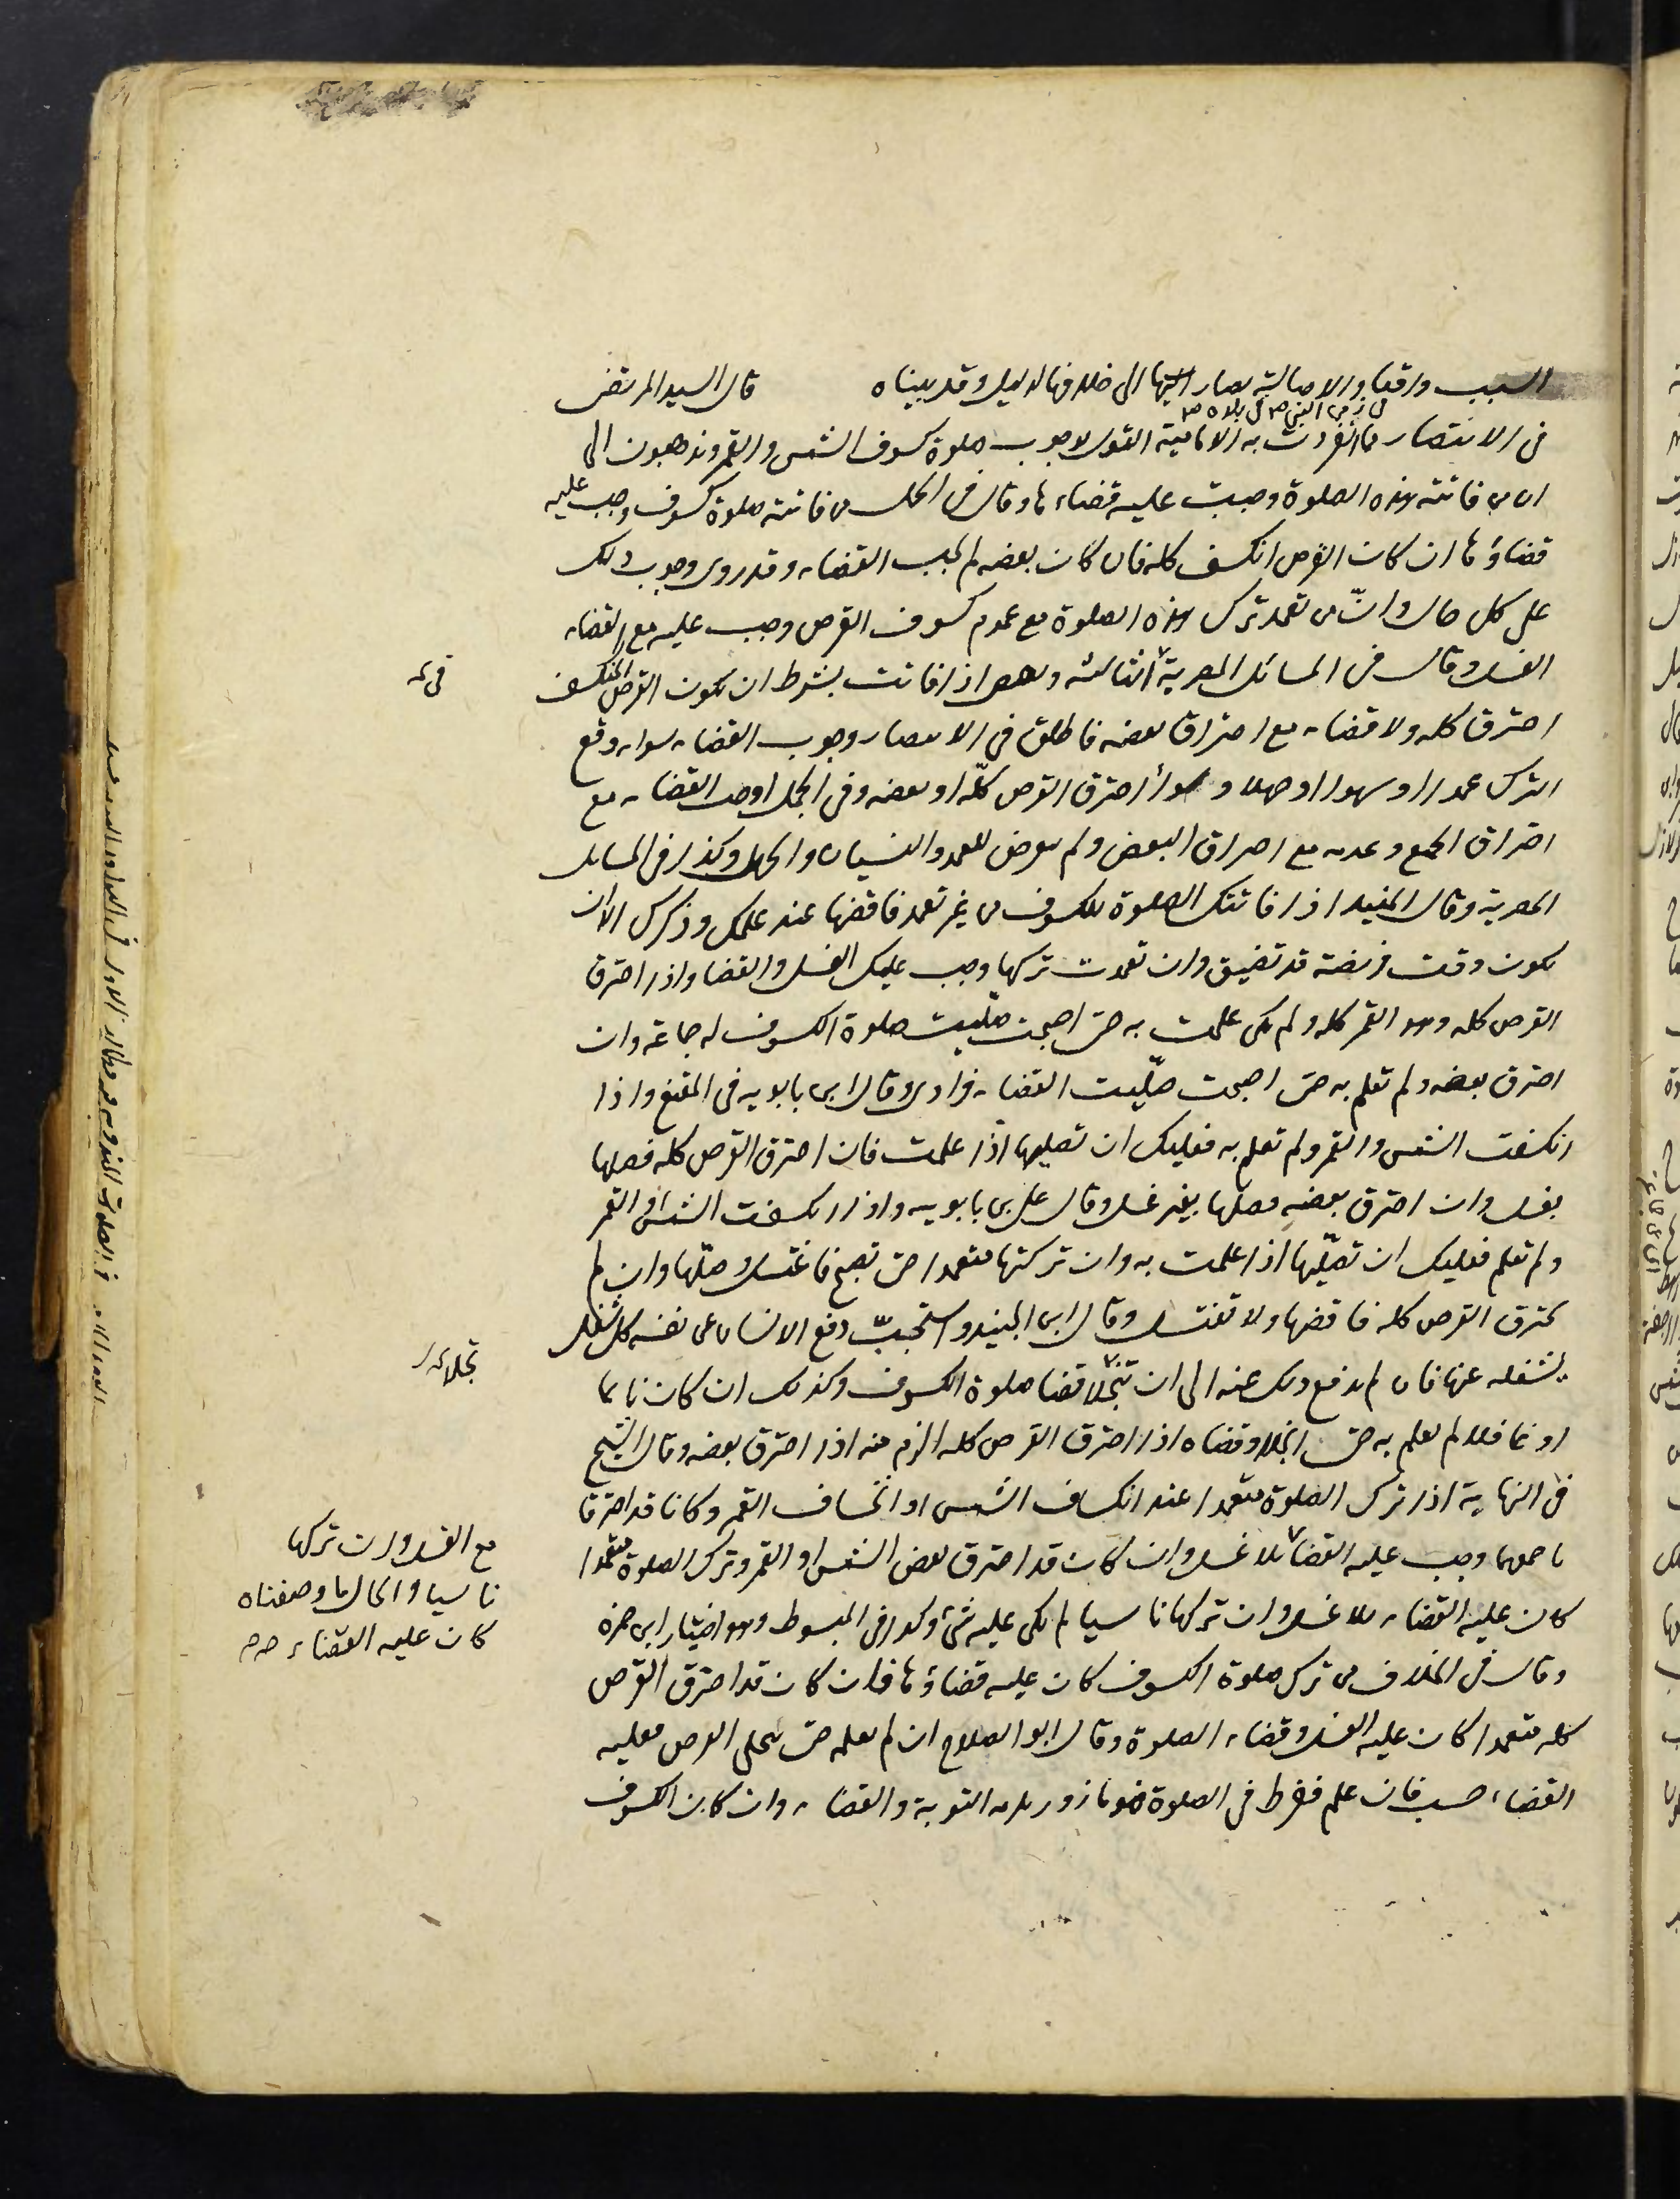 السبب واقعا والاصالة يصار اليها الى خلافها لدليل وقد بيناه قال السيد المرتضى
فى الانتصار مما انفردت به الامامية القول بوجوب صلوة كسوف الشمس والقمر ويذهبون الى
ان من فاتته هذه الصلوة وجبت عليه قضاءها وقال فى الجمل من فاتته صلوة كسوف وجب عليه
قضاؤها ان كان القرص انكسف كله فان كان بعضه لم يجب القضاء وقد روى وجوب ذلك
على كل حال وان من تعمد ترك هذه الصلوة مع عموم كسوف القرص وجب عليه مع القضاء
الغسل وقال فى المسائل المصرية الثالثة ويقضى اذا فاتت بشرط ان يكون القرص المنكسف
احترق كله ولا قضاء مع احتراق بعضه فاطلق فى الانتصار وجوب القضاء سواء وقع
الترك عمدا او سهوا او جهلا وسواء احترق القرص كلّه او بعضه وفى الجمل اوجب القضاء مع
احتراق الجميع وعدمه مع احتراق البعض ولم يعرض للعمد والنسيان والجهل وكذا فى المسايل
المصرية وقال المفيد اذا فاتتك الصلوة للكسوف من غير تعمد فاقضها عند علمك وذكرك الا ان
يكون وقت فريضة قد تضيق وان تعمدت تركها وجب عليك الغسل والقضا واذا احترق
القرص كله وهو القمر كله ولم يكن علمت به حتى اصبحت صلّيت صلوة الكسوف له جماعة وان
احترق بعضه ولم تعلم به حتى اصبحت صلّيت القضاء فرادى وقال ابن بابويه فى المقنع واذا
انكسفت الشمس والقمر ولم تعلم به فعليك ان تصليها اذا علمت فان احترق القرص كله فصلها
بغسل وان احترق بعضه فصلها بغير غسل وقال على بن بابويه واذا انكسفت الشمس او القمر
ولم تعلم فعليك ان تصلّيها اذا علمت به وان تركتها متعمدا حتى تصبح فاغتسل وصلّها وان لم
يحترق القرص كله فاقضها ولا تغتسل وقال ابن الجنيد واستحبّ دفع الانسان عن نفسه كل شغل
يشغله عنها فان لم يدفع ذلك عنه الى ان تنجلا قضا صلوة الكسوف وكذلك ان كان نايما
او غافلا لم يعلم به حتى انجلا وقضاه اذا احترق القرص كله الزم منه اذا احترق بعضه وقال الشيخ
فى النهاية اذا ترك الصلوة متعمدا عند انكساف الشمس او انخساف القمر وكانا قد احترقا
باجمعهما وجب عليه القضا بلا غسل وان كان قد احترق بعض الشمس او القمر وترك الصلوة متعمدا
كان عليه القضاء بلا غسل وان تركها ناسيا لم يكن عليه شئ وكذا فى المبسوط وهو اختيار ابن حمزه
وقال فى الخلاف من ترك صلوة الكسوف كان عليه قضاؤها فان كان قد احترق القرص
كله متعمدا كان عليه الغسل وقضاء الصلوة وقال ابو الصلاح ان لم يعلمه حتى يتجلى القرص فعليه
القضاء حسب فان علم ففرط فى الصلوة فهو مازور يلزمه التوبة والقضاء وان كان الكسوف
مع الغسل وان تركها
ناسيا والحال ما وصفناه
كان عليه القضاء